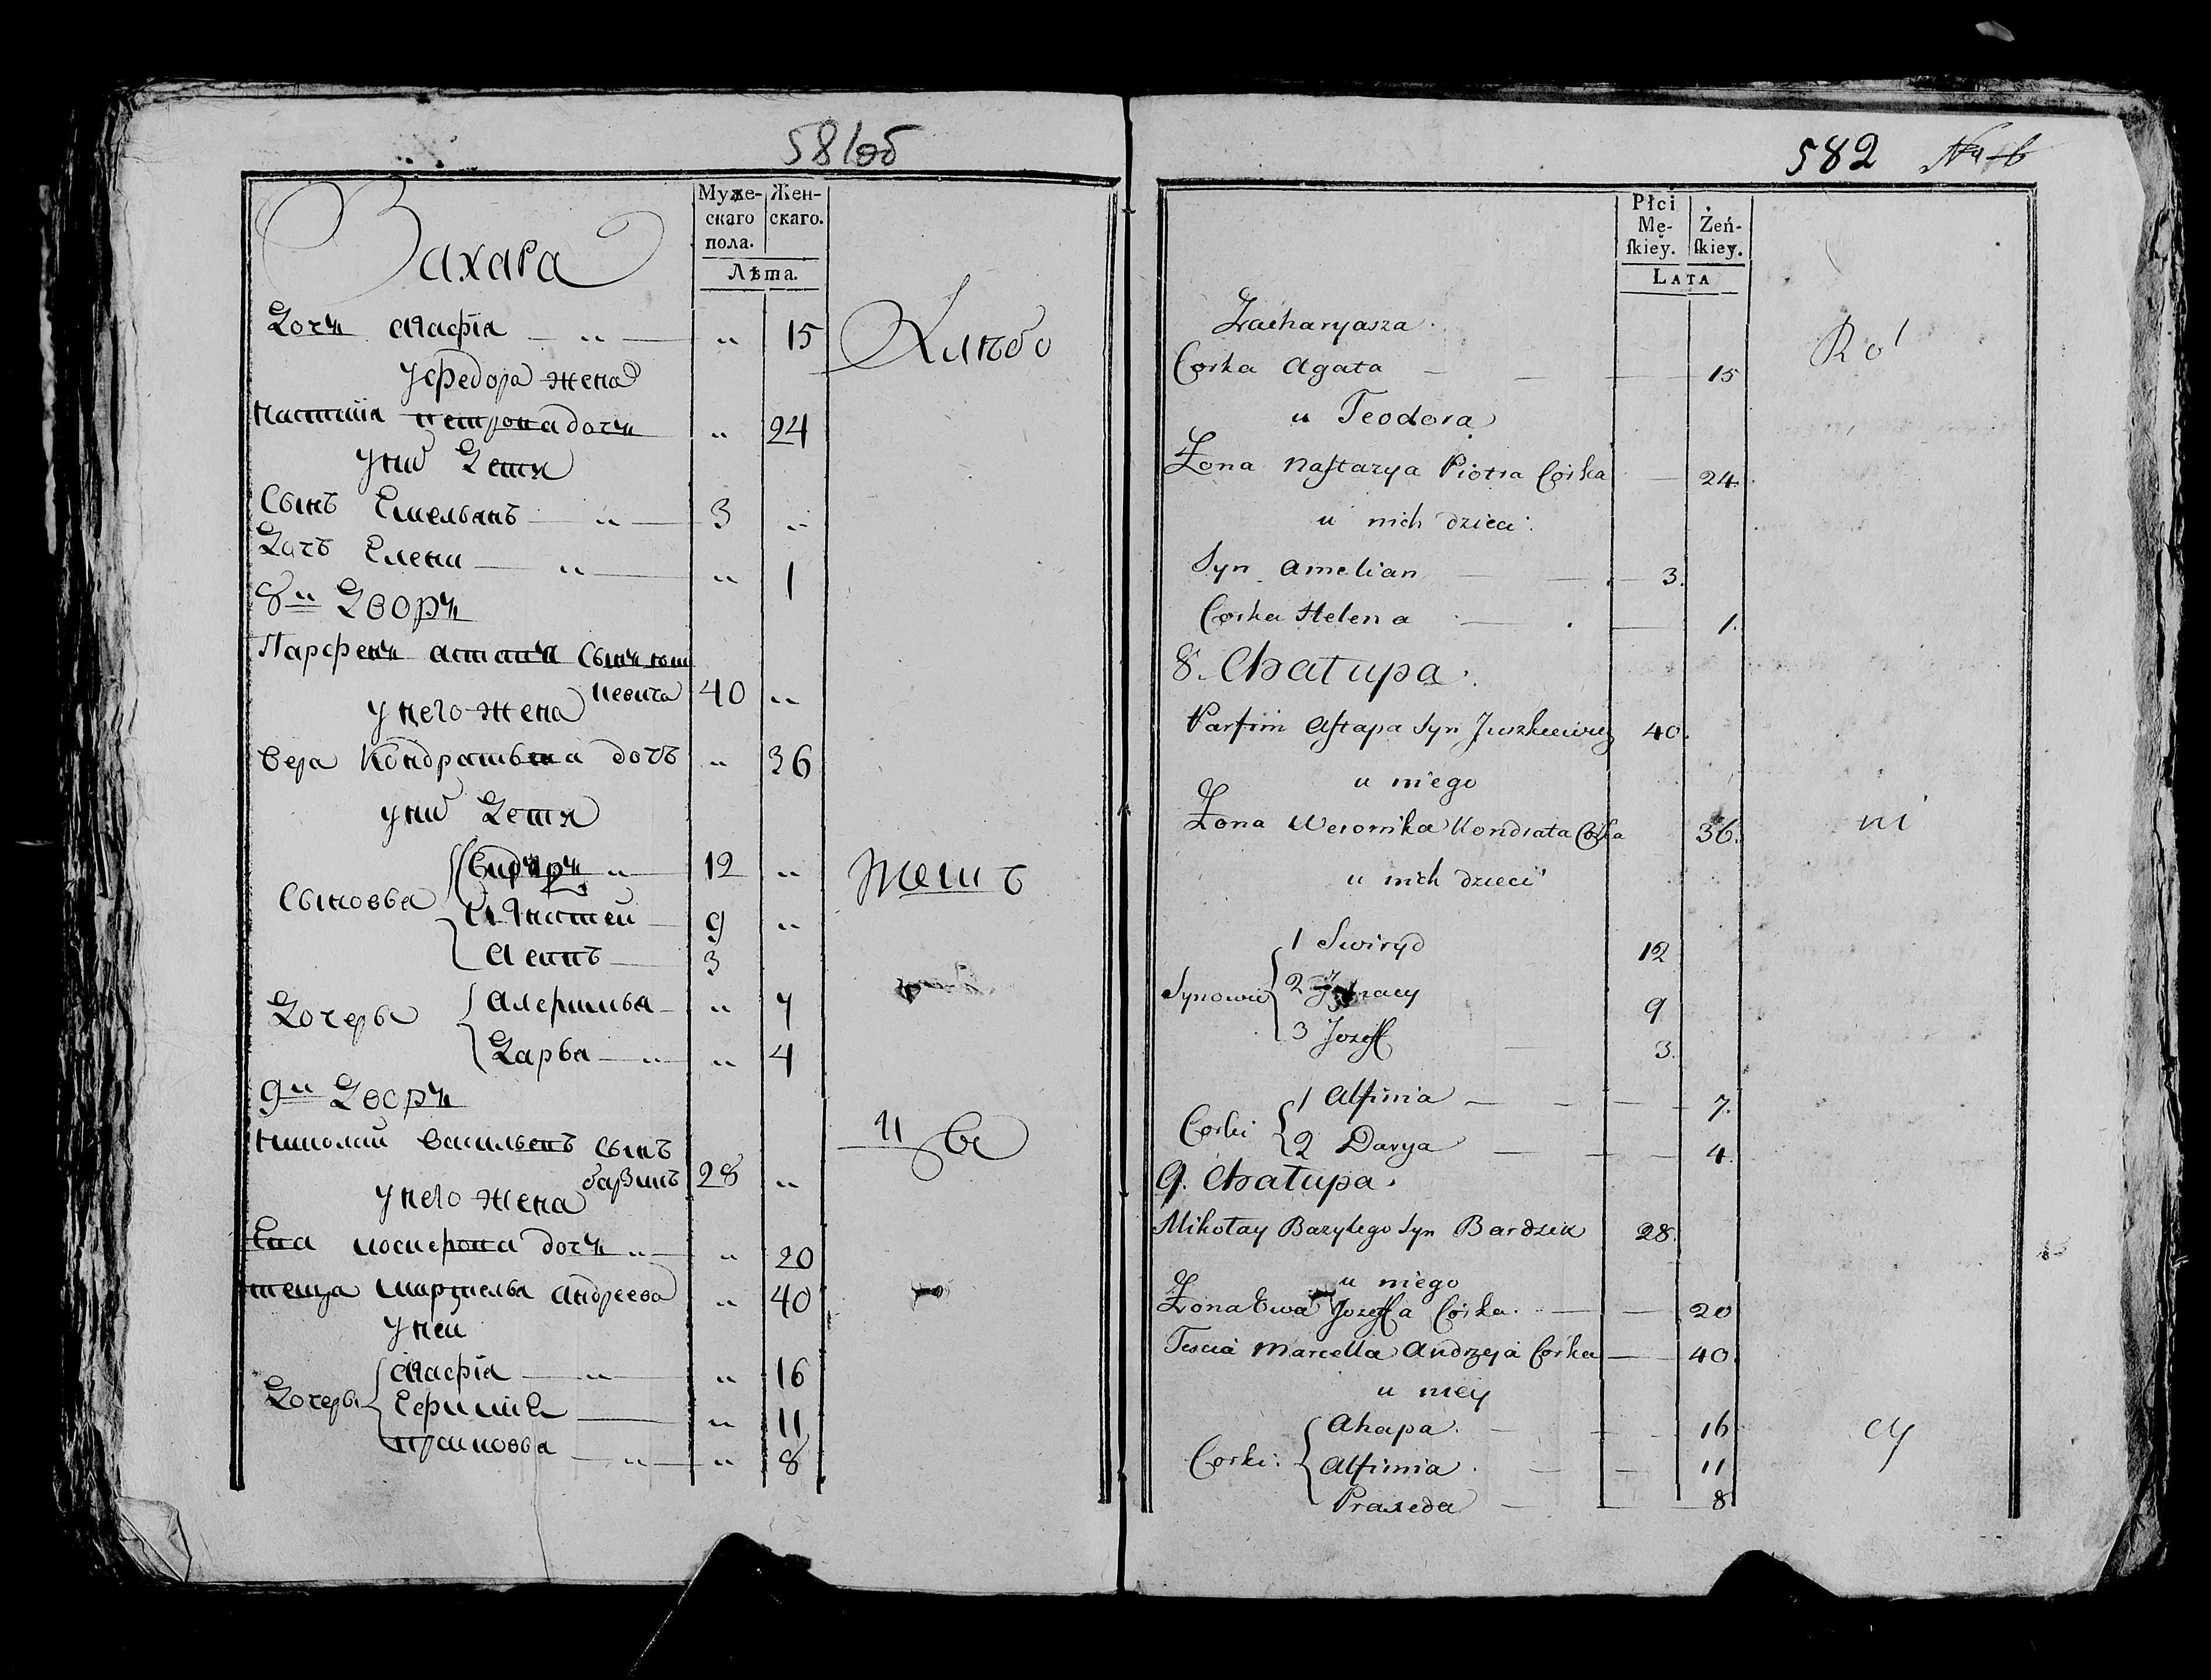 581об
Муже-
скаго
пола.
Жен-
скаго.
Лѣта.
Захара
Дочь Агафія 15
У Федора жена
Настасія Петрова дочь 24
у них Дети
Сынъ Емельянъ 3
Дочь Елена 1
8й Дворъ
Парфенъ Астапа Сынъ Юш
кевичь 40
у него жена
Вера Кондратьева дочь 36
у них Дети
Сыновья
Свирыдъ 12
Игнатей 9
Осипъ 3
Дочерьи
7
Дарья 4
9й Дворъ
Николай Васильевъ Сынъ
28
у него жена
Ева Іосиерова дочь 20
теща Марцела Андреева 40
у ней
Дочерьи
Агафія 16
Ефимия 11
Прасковья 8
582
Płci
Mę-
skiey.
Żeń-
skiey.
LATA
Zacharyasza.
Corka Agata 15
u Teodora
Żona Nastazya Piotra Corka 24
u nich dzieci.
Syn Amelian 3.
Corka Helena 1.
8. Chatupa.
Parfim Astapa Syn Juszkiewicz 40.
u niego
Żona Weronika Kondrata Corka 36.
u nich dzieci
Synowie
1 Swiryd 12
2 9
3 Jozeff 3.
Corki
1 Alfimia 7.
2 Darya 4.
9. Chatupa.
Mikołay Bazylego Syn Bardzik 28.
u niego
Żona Ewa Jozeffa Corka. 20
Tescia Marcella Andrzeja Corka 40.
u niey
Corki.
Ahapa. 16
Alfimia. 11
Praxeda 8
Ro
ni
cy